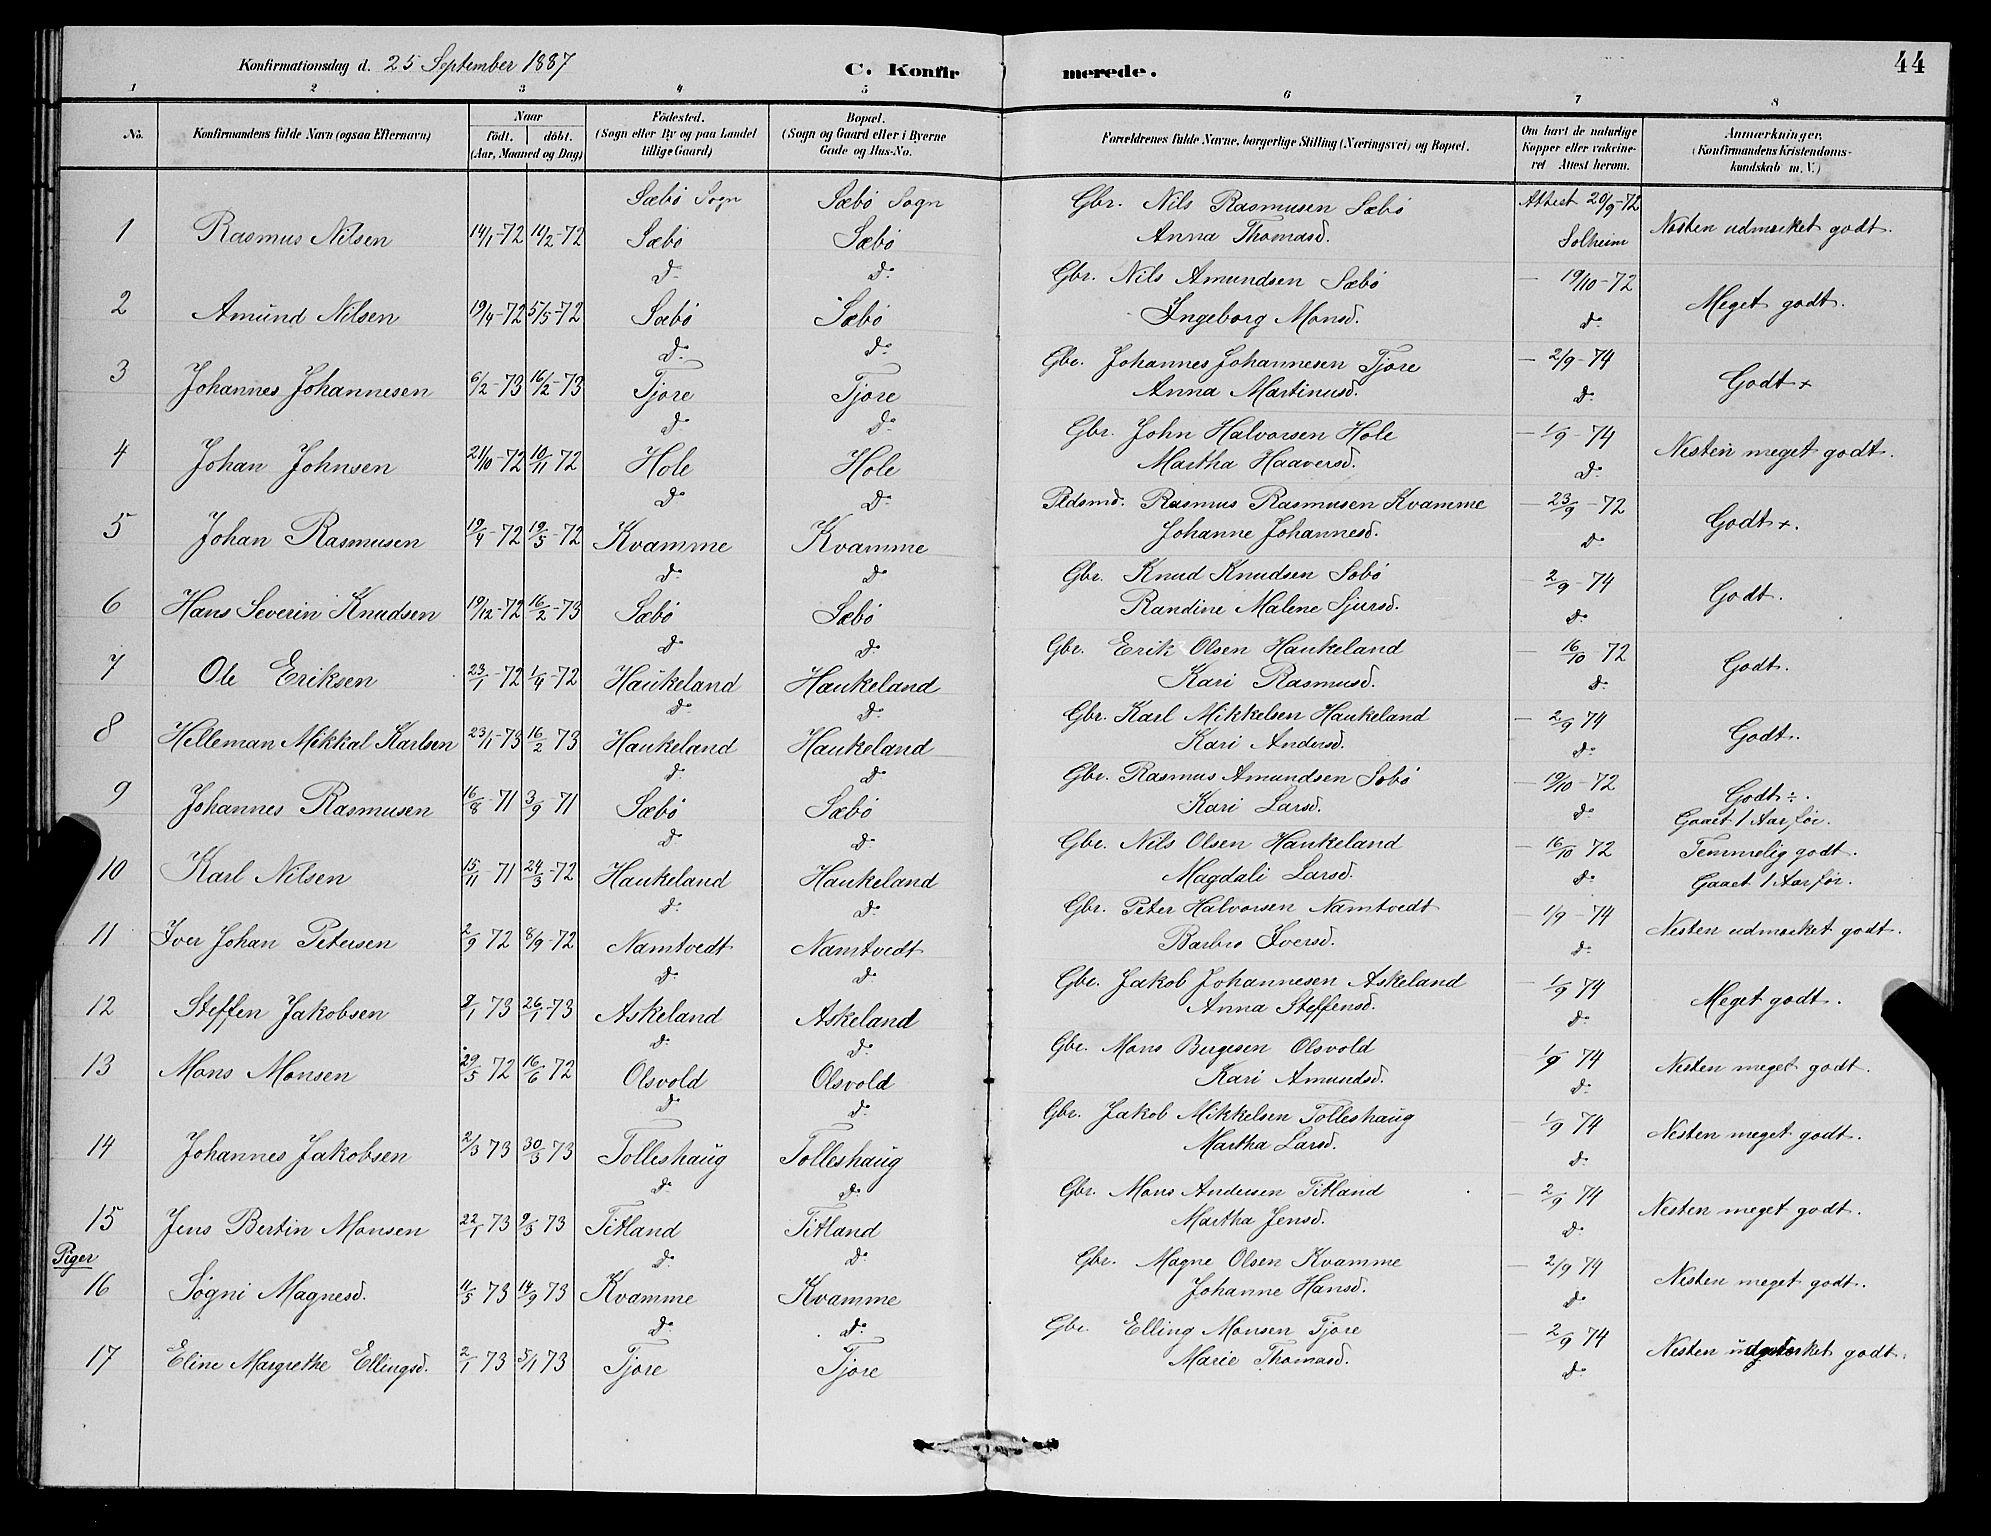 Konfirmationsdag d. 25 September 1887 C. Konfirmerede. 44
1 2 3 4 5 6 7 8
No. Konfirmandens fulde Navn (ogsaa Efternavn) Naar födt. döbt. (Aar, Maaned og Dag) Födested. (Sogn eller By og paa Landet tillige Gaard) Bopæl. (Sogn og Gaard eller i Byerne Gade og Hus-No. Forældrenes fulde Navne, borgerlige Stilling (Næringsvei) og Bopæl. Om havt de naturlige Kopper eller vakcineret Attest herom. Anmærkninger. (Konfirmandens Kristendomskundskab m. V.)
Sæbö Sogn Sæbö Sogn Gbr. Nils Rasmusen Sæbö Attest 20/9-72
1 Rasmus Nilsen 14/1-72 11/2-72 Sæbö Sæbö Anna Thomasd. Solheim Nesten udmærket godt.
d: d: Gbr. Nils Amundsen Sæbö - 19/10-72
2 Amund Nilsen 19/4-72 5/5-72 Sæbö Sæbö Ingeborg Monsd. d: Meget godt.
d: d: Gbr. Johannes Johannesen Tjore - 2/9-74
3 Johannes Johannesen 6/2-73 16/2-73 Tjore Tjore Anna Martinusd. d: Godt +
d: d: Gbr. John Halvorsen Hole - 1/9-74
4 Johan Johnsen 21/10-72 10/11 72 Hole Hole Martha Haaversd. d: Nesten meget godt.
d: d: Pldsmd. Rasmus Rasmusen Kvamme - 23/9-72
5 Johan Rasmusen 19/4-72 19/5-72 Kvamme Kvamme Johanne Johannesd. d: Godt +.
d: d: Gbr. Knud Knudsen Sæbö - 2/9-74
6 Hans Severin Knudsen 19/12-72 16/2-73 Sæbö Sæbö Randine Malene Sjursd. d: Godt.
d: d: Gbr. Erik Olsen Haukeland - 16/10 72
7 Ole Eriksen 23/1-72 1/4-72 Haukeland Haukeland Kari Rasmusd. d: Godt.
d: d: Gbr. Karl Mikkelsen Haukeland - 2/9 74
8 Helleman Mikkal Karlsen 23/1-73 16/2 73 Haukeland Haukeland Kari Andersd. d: Godt.
d: d: Gbr. Rasmus Amundsen Sæbö - 19/10-72
9 Johannes Rasmusen 16/8 71 3/9-71 Sæbö Sæbö Kari Larsd. d: Godt ÷.
Gaaet 1 Aar för.
d: d: Gbr. Nils Olsen Haukeland - 16/10 72 Temmelig godt.
10 Karl Nilsen 15/11 71 24/3-72 Haukeland Haukeland Magdali Larsd. d: Gaaet 1 Aar för.
d: d: Gbr. Peter Halvorsen Namtvedt - 1/9-74
11 Iver Johan Petersen 2/9 72 8/9-72 Namtvedt Namtvedt Barbro Iversd. d: Nesten udmærket godt.
d: d: Gbr. Jakob Johannesen Askeland - 1/9 74
12 Steffen Jakobsen 2/1 73 26/1-73 Askeland Askeland Anna Steffensd. d: Meget godt.
d: d: Gbr. Mons Birgesen Olsvold - 1/9 74
13 Mons Monsen 29/5 72 16/6 72 Olsvold Olsvold Kari Amundsd. d: Nesten meget godt.
d: d: Gbr. Jakob Mikkelsen Tolleshaug - 1/9 74
14 Johannes Jakobsen 2/3 73 30/3 73 Tolleshaug Tolleshaug Martha Larsd. d: Nesten meget godt.
d: d: Gbr. Mons Andersen Titland - 2/9 74
15 Jens Bertin Monsen 22/1 73 9/3 73 Titland Titland Martha Jensd. d: Nesten meget godt.
Piger
d: d: Gbr. Magne Olsen Kvamme - 2/9 74
16 Søgni Magnesd. 11/5 73 14/9 73 Kvamme Kvamme Johanne Hansd. d: Nesten meget godt.
d: d: Gbr. Elling Monsen Tjore - 2/9 74
17 Eline Margrethe Ellingsd. 2/1 73 5/1 73 Tjore Tjore Marie Thomasd. d: Nesten godt.